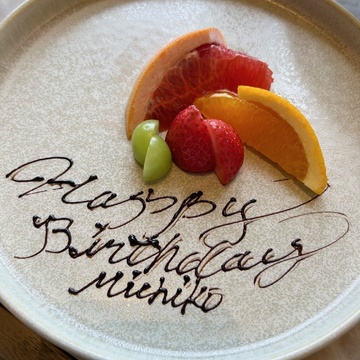 Happy
Birthday
Michiko